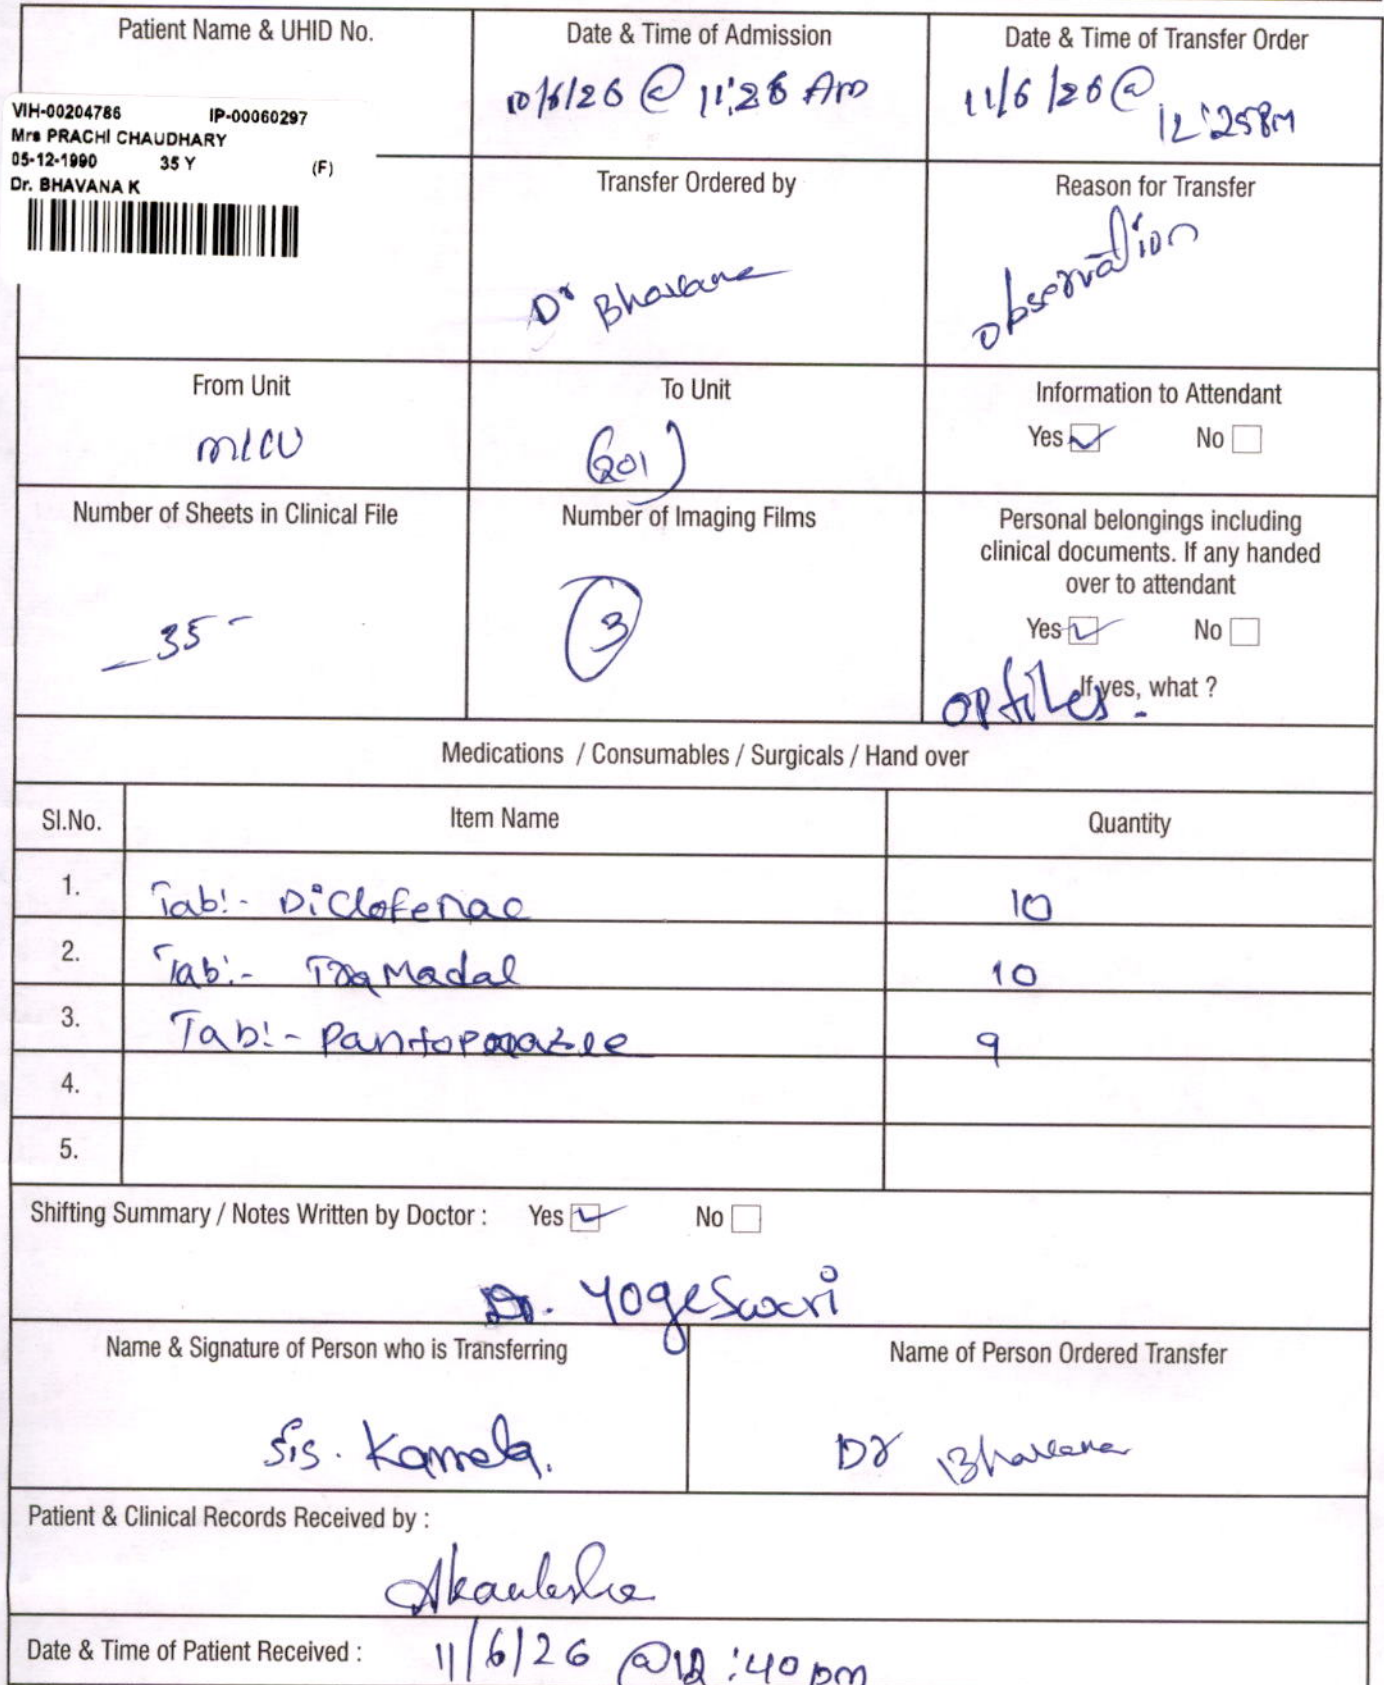 Patient Name & UHID No.
VIH-00204786 IP-00060297
Mrs PRACHI CHAUDHARY
05-12-1990 35 Y (F)
Dr. BHAVANA K
Date & Time of Admission
10/6/26 @ 11:26 Am
Date & Time of Transfer Order
11/6/26 @
12:25PM
Transfer Ordered by
Dr Bhavana
Reason for Transfer
observation
From Unit
MICU
To Unit
(201)
Information to Attendant
Yes No
Number of Sheets in Clinical File
35
Number of Imaging Films
3
Personal belongings including
clinical documents. If any handed
over to attendant
Yes No
If yes, what ?
OP files.
Medications / Consumables / Surgicals / Hand over
Sl.No. Item Name Quantity
1. Tab:- Diclofenac 10
2. Tab:- TraMadal 10
3. Tab:- 9
4.
5.
Shifting Summary / Notes Written by Doctor : Yes No
Dr. Yogeswari
Name & Signature of Person who is Transferring
Sis. Kamala.
Name of Person Ordered Transfer
Dr Bhavana
Patient & Clinical Records Received by :
Date & Time of Patient Received : 11/6/26 @ 12:40 pm